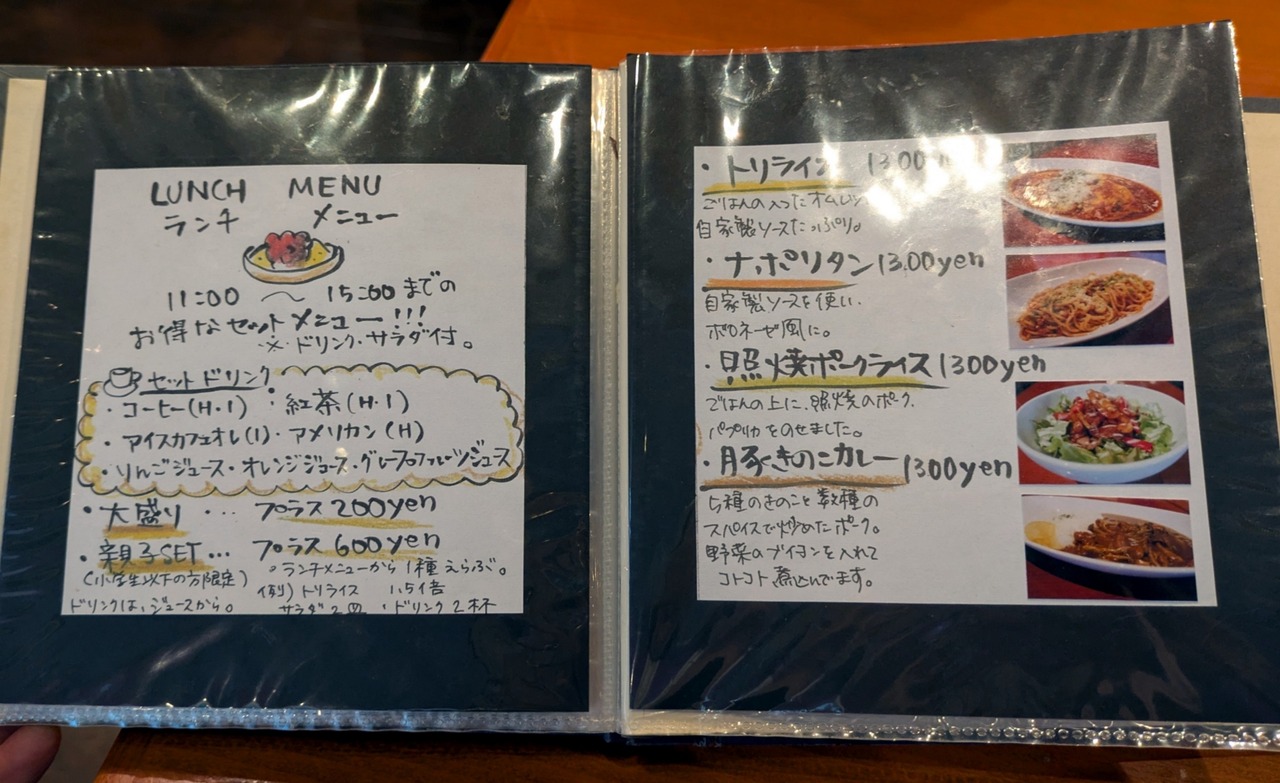 LUNCH MENU
ランチ メニュー
11:00 〜 15:00までの
お得なセットメニュー!!!
※ドリンク・サラダ付。
セットドリンク
・コーヒー(H・I) ・紅茶(H・I)
・アイスカフェオレ(I)・アメリカン(H)
・りんごジュース・オレンジジュース・グレープフルーツジュース
・大盛り ・・・ プラス200yen
・親子SET… プラス600yen
(小学生以下の方限定) 。ランチメニューから1種えらぶ。
例) トリライス 1.5倍
ドリンクは、ジュースから。 サラダ2皿 ・ドリンク2杯
・トリライス 1300
ごはんの入ったオムレツ
自家製ソースたっぷり。
・ナポリタン1300yen
自家製ソースを使い、
ボロネーゼ風に。
・照焼ポークライス1300yen
ごはんの上に、照焼のポーク、
パプリカをのせました。
・豚ときのこカレー1300yen
5種のきのこと数種の
スパイスで炒めたポーク。
野菜のブイヨンを入れて
コトコト煮込んでます。